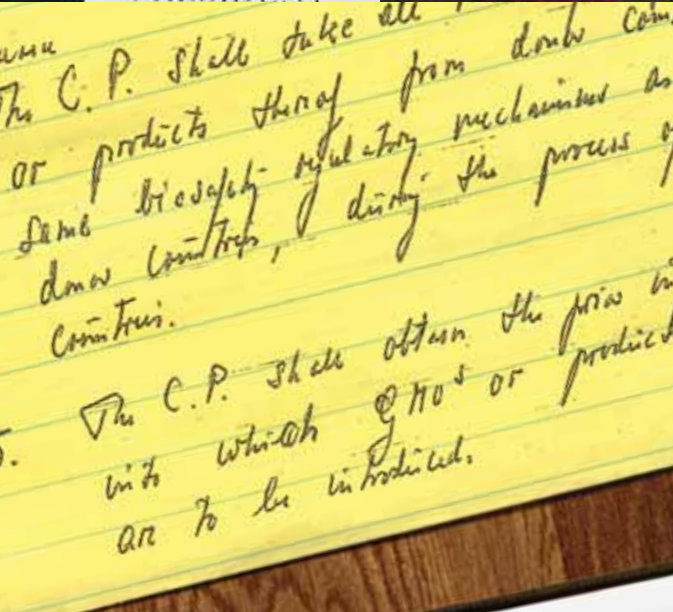 The C.P. shall take all
or products thereof from donor
same biosafety regulatory mechanisms as
donor countries, during the process
countries.
5. The C.P. shall obtain the prior
into which GMOs or product
are to be introduced.